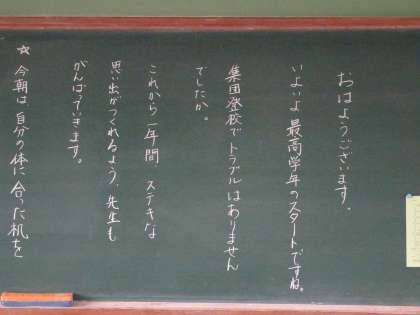 おはようございます。
いよいよ最高学年のスタートですね。
集団登校でトラブルはありません
でしたか。
これから一年間、ステキな
思い出がつくれるよう、先生も
がんばっていきます。
☆今朝は、自分の体に合った机を